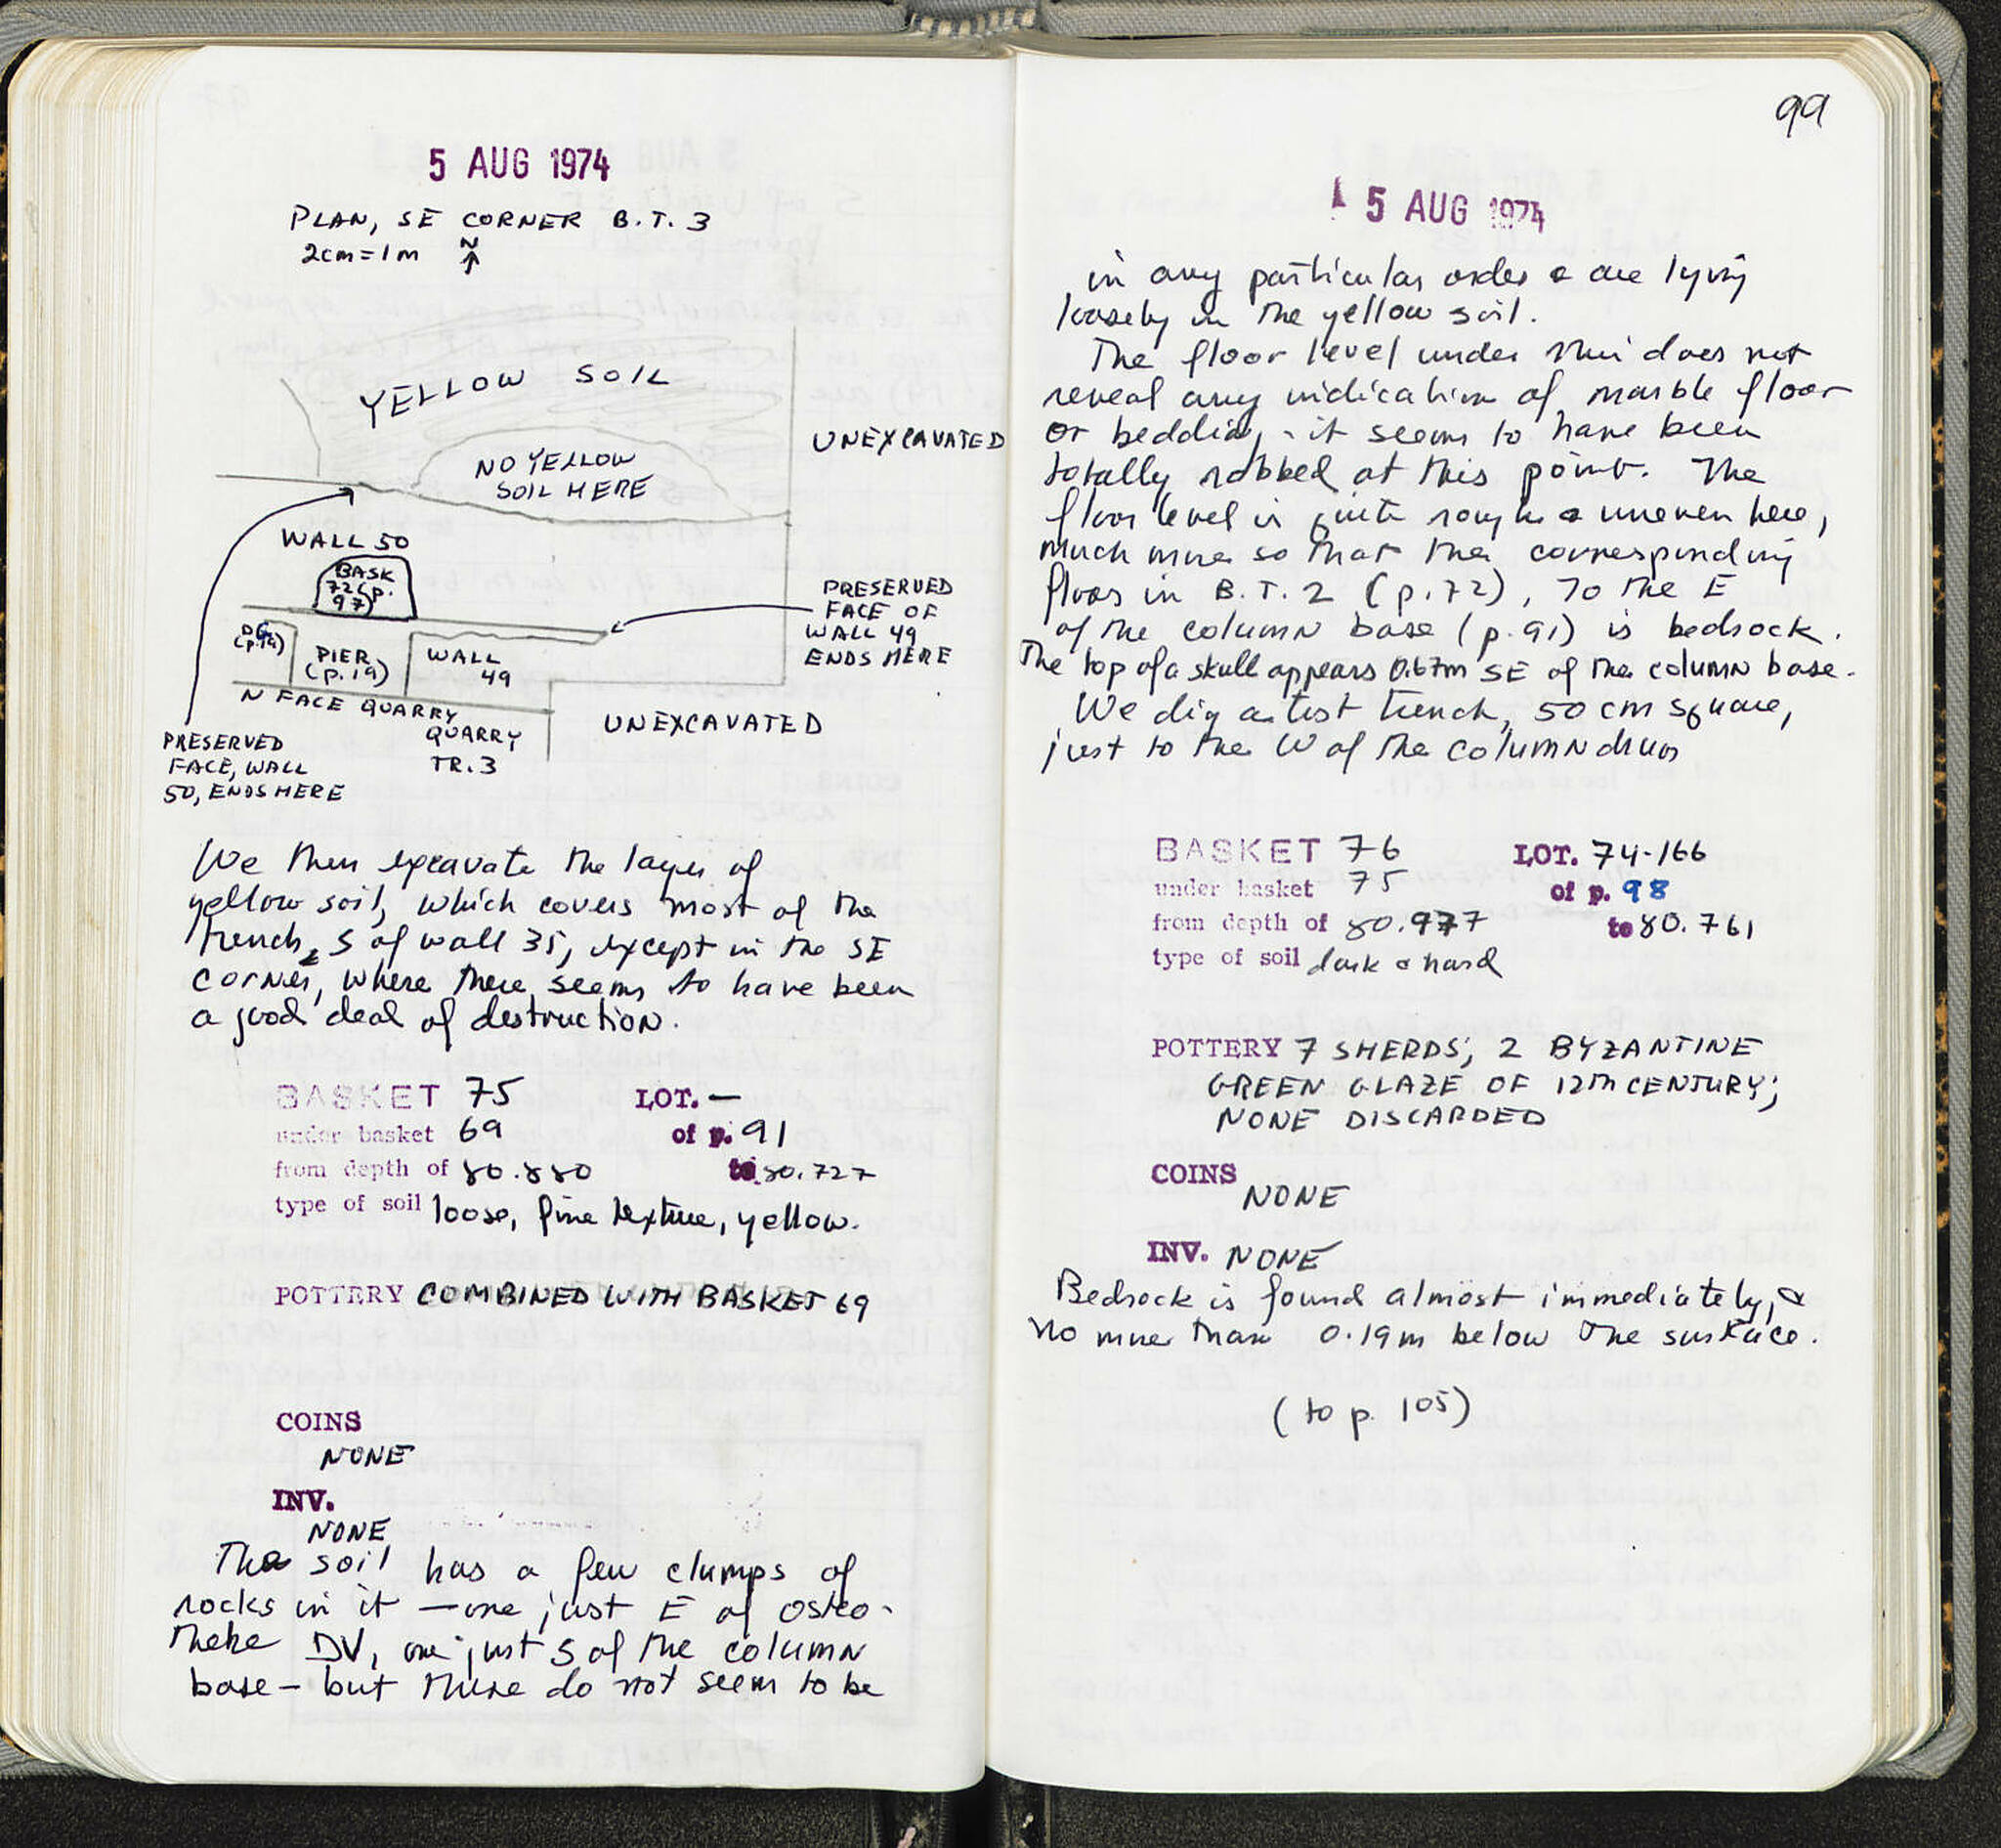 5 AUG 1974
PLAN, SE CORNER B.T. 3
2cm=1m N
YELLOW SOIL
UNEXCAVATED
NO YELLOW
SOIL HERE
WALL 50
BASK
72 (p.
97)
PRESERVED
FACE OF
WALL 49
ENDS HERE
(p.19)
PIER
(p.19)
WALL
49
N FACE QUARRY
QUARRY
TR. 3
UNEXCAVATED
PRESERVED
FACE, WALL
50, ENDS HERE
We then excavate the layer of
yellow soil, which covers most of the
trench, S of wall 35, except in the SE
corner, where there seems to have been
a good deal of destruction.
BASKET 75 LOT. —
under basket 69 of p. 91
from depth of 80.880 to 80.727
type of soil loose, fine texture, yellow.
POTTERY COMBINED WITH BASKET 69
COINS
NONE
INV.
NONE
The soil has a few clumps of
rocks in it — one just E of osteo-
theke DV, one just S of the column
base – but these do not seem to be
99
5 AUG 1974
in any particular order & are lying
loosely in the yellow soil.
The floor level under this does not
reveal any indication of marble floor
or bedding - it seems to have been
totally robbed at this point. The
floor level is quite rough & uneven here,
much more so that the corresponding
floor in B.T. 2 (p.72), To the E
of the column base (p.91) is bedrock.
The top of a skull appears 0.67m SE of the column base.
We dig a test trench, 50 cm square,
just to the W of the column drum
BASKET 76 LOT. 74-166
under basket 75 of p. 98
from depth of 80.977 to 80.761
type of soil dark & hard
POTTERY 7 SHERDS; 2 BYZANTINE
GREEN GLAZE OF 12TH CENTURY;
NONE DISCARDED
COINS
NONE
INV. NONE
Bedrock is found almost immediately, &
no more than 0.19m below the surface.
(to p. 105)